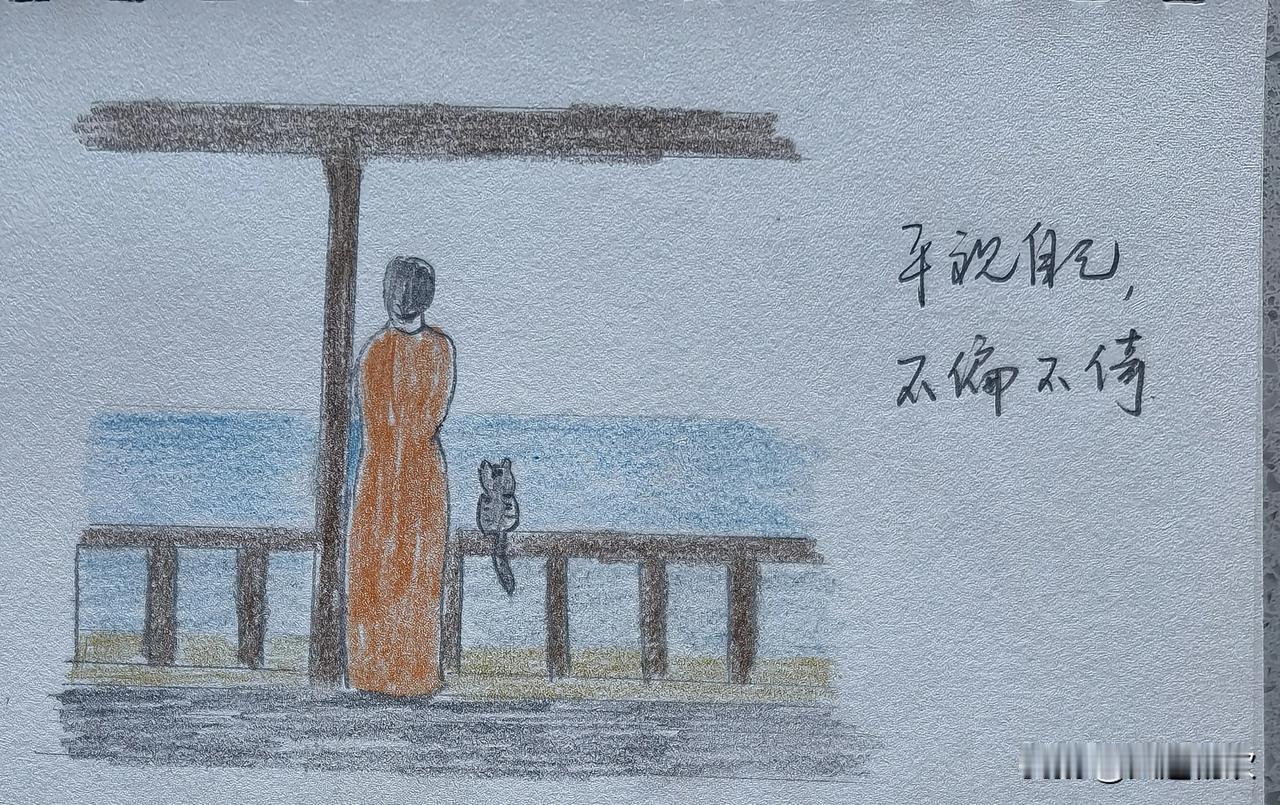 平视自己,
不偏不倚